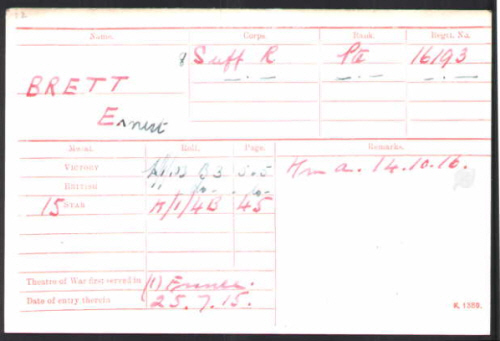 Name. Corps. Rank. Regtl. No.
8 Suff R Pte 16193
BRETT
Ernest
Medal. Roll. Page. Remarks.
VICTORY B3
BRITISH
15 STAR K/1/4B 45
a. 14.10.16.
Theatre of War first served in (1) France.
Date of entry therein 25.7.15.
K. 1380.